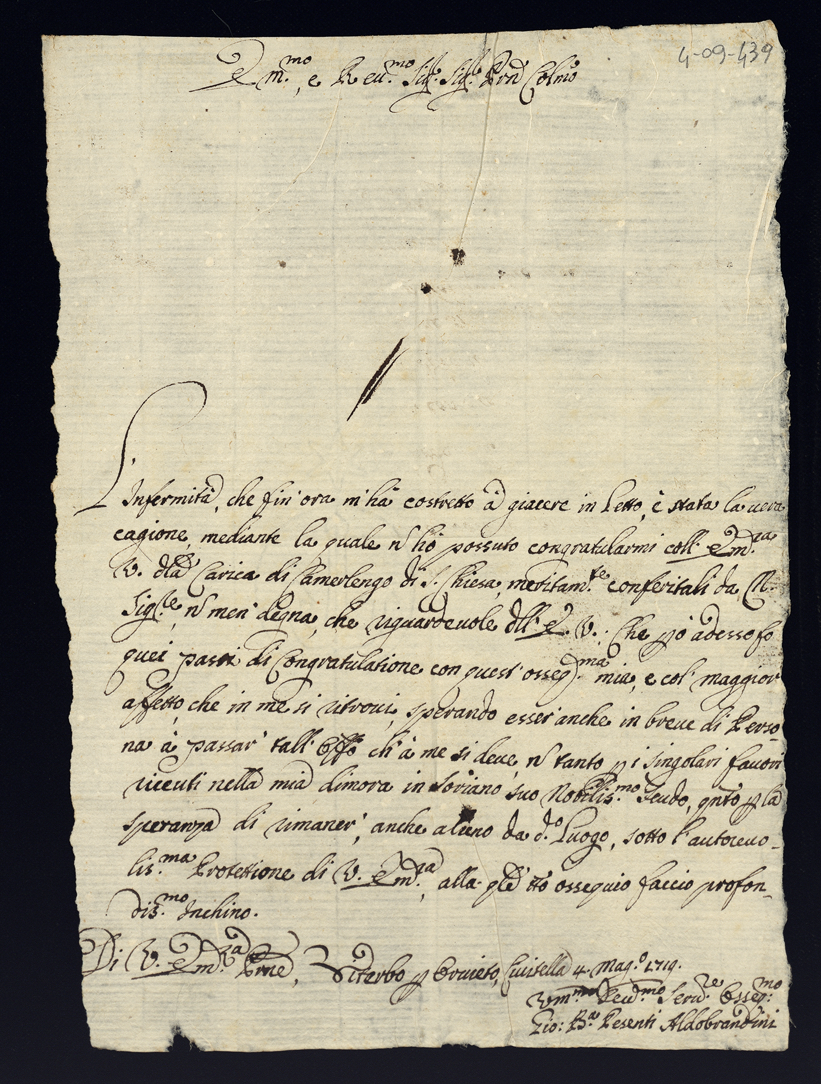 4-09-439
Em.mo, e Reu.mo Sig.r Sig.r Prñ Colmo
L'Infermità, che fin'ora m'hà costretto à giacere in Letto, è stata la uera
cagione, mediante la quale ñ hò possuto congratularmi coll' Em.za
V. dlã Carica di Camerlengo di S. Chiesa, meritam.te conferitali da N.
Sig.re, ñ men' degna, che riguardeuole dll' E. V. Che p̃ò adesso fo
quei passi di Congratulatione con quest' osseq.ma mia, e col' maggior
affetto, che in me si ritroui, sperando esser'anche in breue di Perso-
na à passar' tall' Offõ ch'à me si deue, ñ tanto p̃ i singolari fauori
riceuti nella mia dimora in Soriano suo Nobilis.mo Feudo, qnto p̃ la
speranza di rimaner', anche alieno da d.o Luogo, sotto l'autoreuo-
lis.ma Protettione di V. Em.za, alla qle tto ossequio faccio profon-
dis.mo Inchino.
Di V. Em.za Prñe, Viterbo p̃ Oruieto, Ciuitella 4. Mag.o 1719.
Vm.mo Deu.mo Seru.re Osseq.mo
Gio: Ba Pesenti Aldobrandini